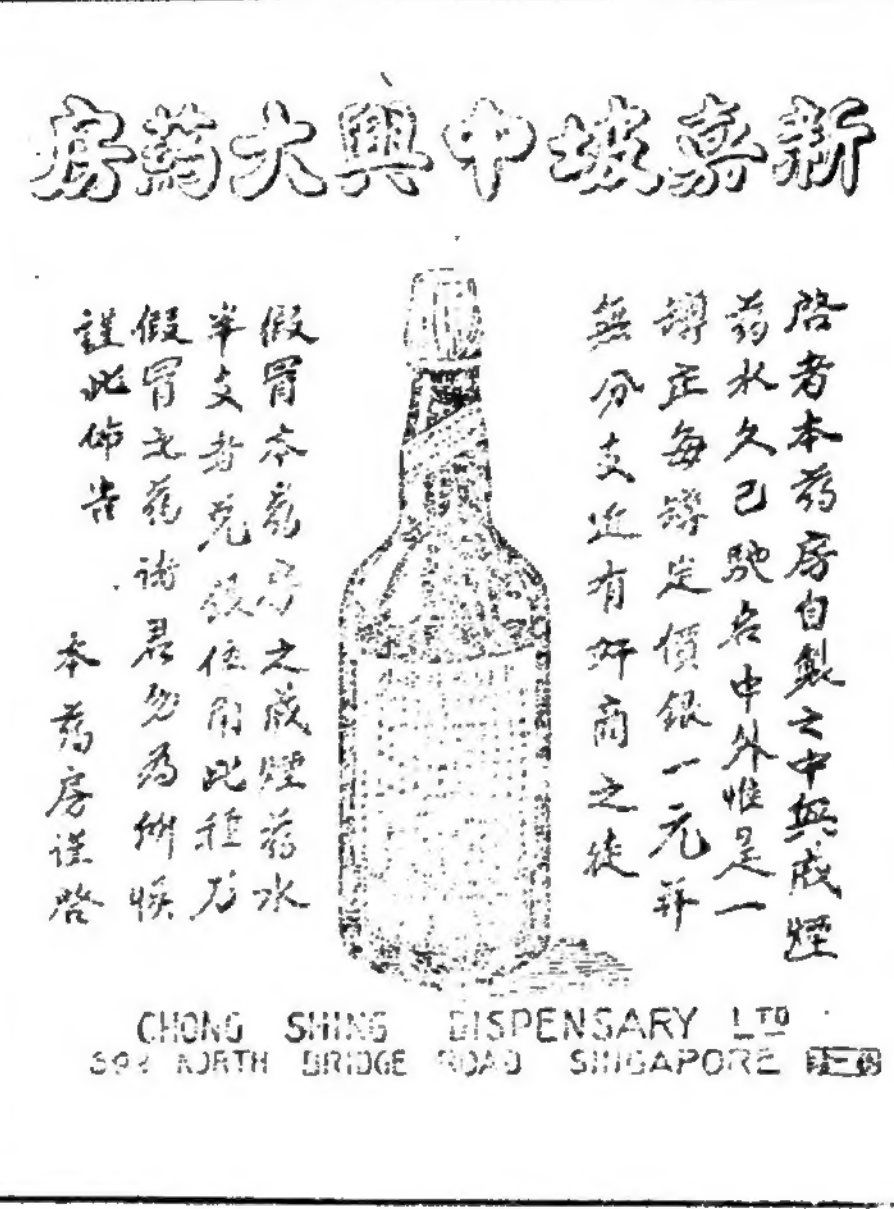 新嘉坡中興大葯房
啓者本葯房自製之中興戒煙
葯水久已馳名中外惟是一
罇正每罇定價銀一元並
無分支近有奸商之徒
假冒本葯房之戒煙葯水
半支者兌銀伍角此種乃
假冒之葯諸君勿為所悞
謹此佈告
本葯房謹啓
CHONG SHING DISPENSARY LTD
NORTH BRIDGE ROAD SINGAPORE